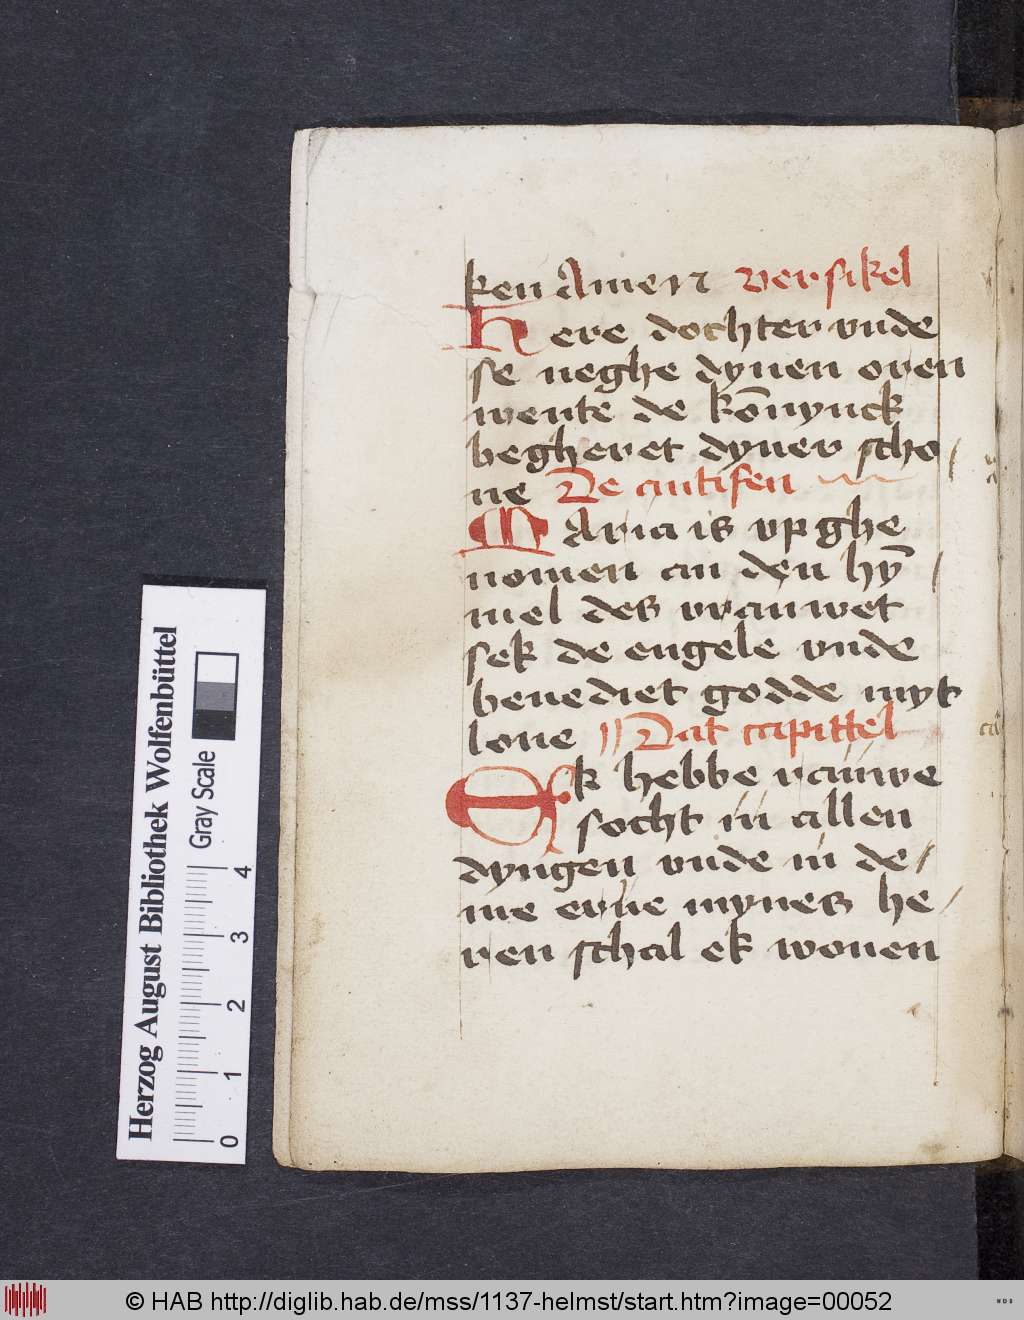 ken Amen versikel
Here dochter vnde
se neghe dynen oren
wente de kōnynck
begheret dyner scho/
ne De antifen
Maria is vp ghe
nomen an den hȳ/
mel des vrauwet
sek de engele vnde
benediet godde myt
loue Dat capittel
Ek hebbe rauwe
socht in allen
dyngen vnde in de/
me erue mynes he/
ren schal ek wonen
Herzog August Bibliothek Wolfenbüttel
Gray Scale
0 1 2 3 4
© HAB http://diglib.hab.de/mss/1137-helmst/start.htm?image=00052